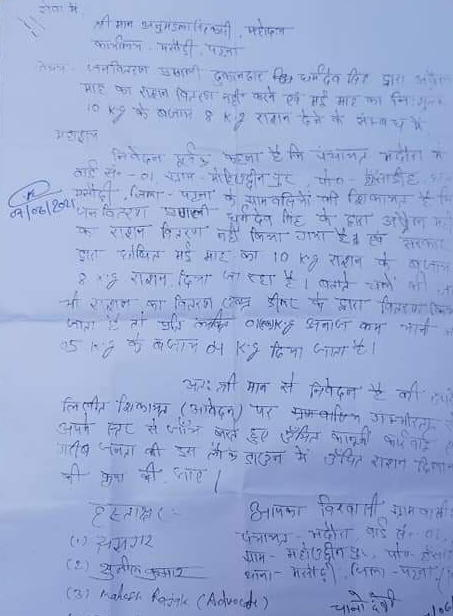 सेवा में,
श्री मान अनुमंडलाधिकारी, महोदय
कार्यालय - मसौढ़ी, पटना
विषय - जनवितरण प्रणाली दुकानदार धर्मदेव सिंह द्वारा अप्रैल
माह का राशन वितरण नहीं करने एवं मई माह का
10 Kg के बजाय 8 Kg राशन देने के संबंध में
महाशय
निवेदन पूर्वक कहना है कि पंचायत भदौरा के
वार्ड सं०-01 ग्राम - मोहिउद्दीनपुर पो०-
मसौढ़ी, जिला - पटना के ग्रामवासियों की शिकायत है कि
जन वितरण प्रणाली धर्मदेव सिंह के द्वारा अप्रैल
का राशन वितरण नहीं किया गया है एवं सरकार
द्वारा घोषित मई माह का 10 Kg राशन के बजाय
8 Kg राशन दिया जा रहा है।
भी राशन का वितरण डीलर के द्वारा वितरण किया
जाता है तो प्रति व्यक्ति 01 Kg अनाज कम यानी
05 Kg के बजाय 04 Kg दिया जाता है।
अतः श्री मान से निवेदन है की
लिखित शिकायत (आवेदन) पर गम्भीरता
अपने स्तर से जाँच करते हुए उचित कानूनी कारवाई
गरीब जनता को इस लॉक डाउन में उचित राशन
की कृपा की जाए।
हस्ताक्षर:-
आपका विश्वासी ग्रामवासी
पंचायत - भदौरा, वार्ड सं०-01,
ग्राम - मोहिउद्दीनपुर, पो०
थाना - मसौढ़ी, जिला - पटना
(1)
(2) सुनील कुमार
(3) Mahesh (Advocate)
देवी